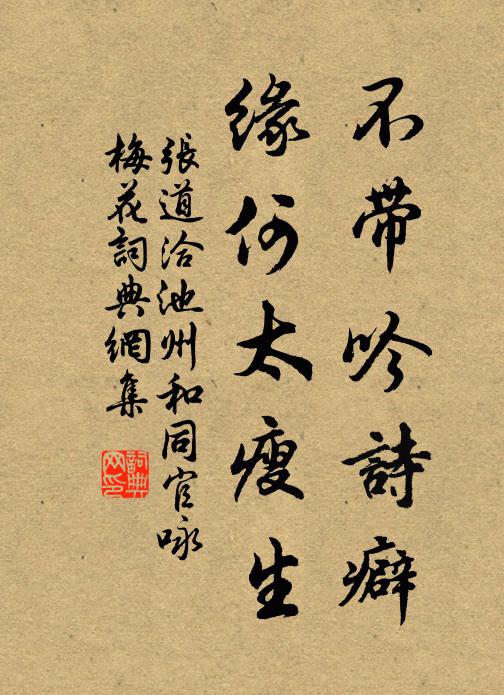 不帶吟詩癖
緣何太瘦生
張道洽池州和同官咏
梅花詞典網集
詞典
网印